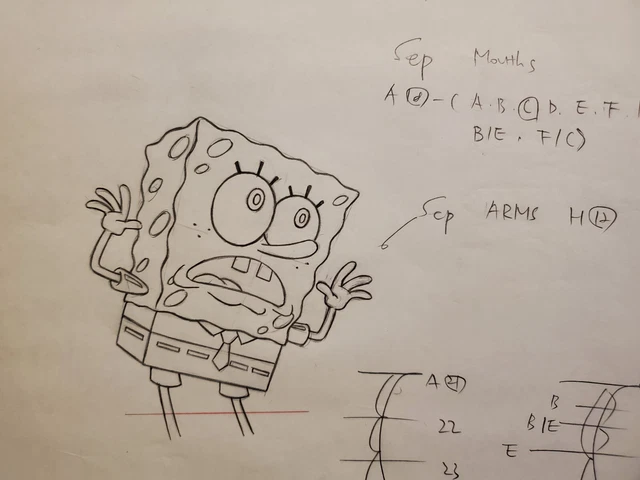 Sep Mouths
A (d) - ( A. B. (C) D. E. F.
B/E, F/C)
Sep ARMS H (17)
A (21)
B
22
B/E
E
23